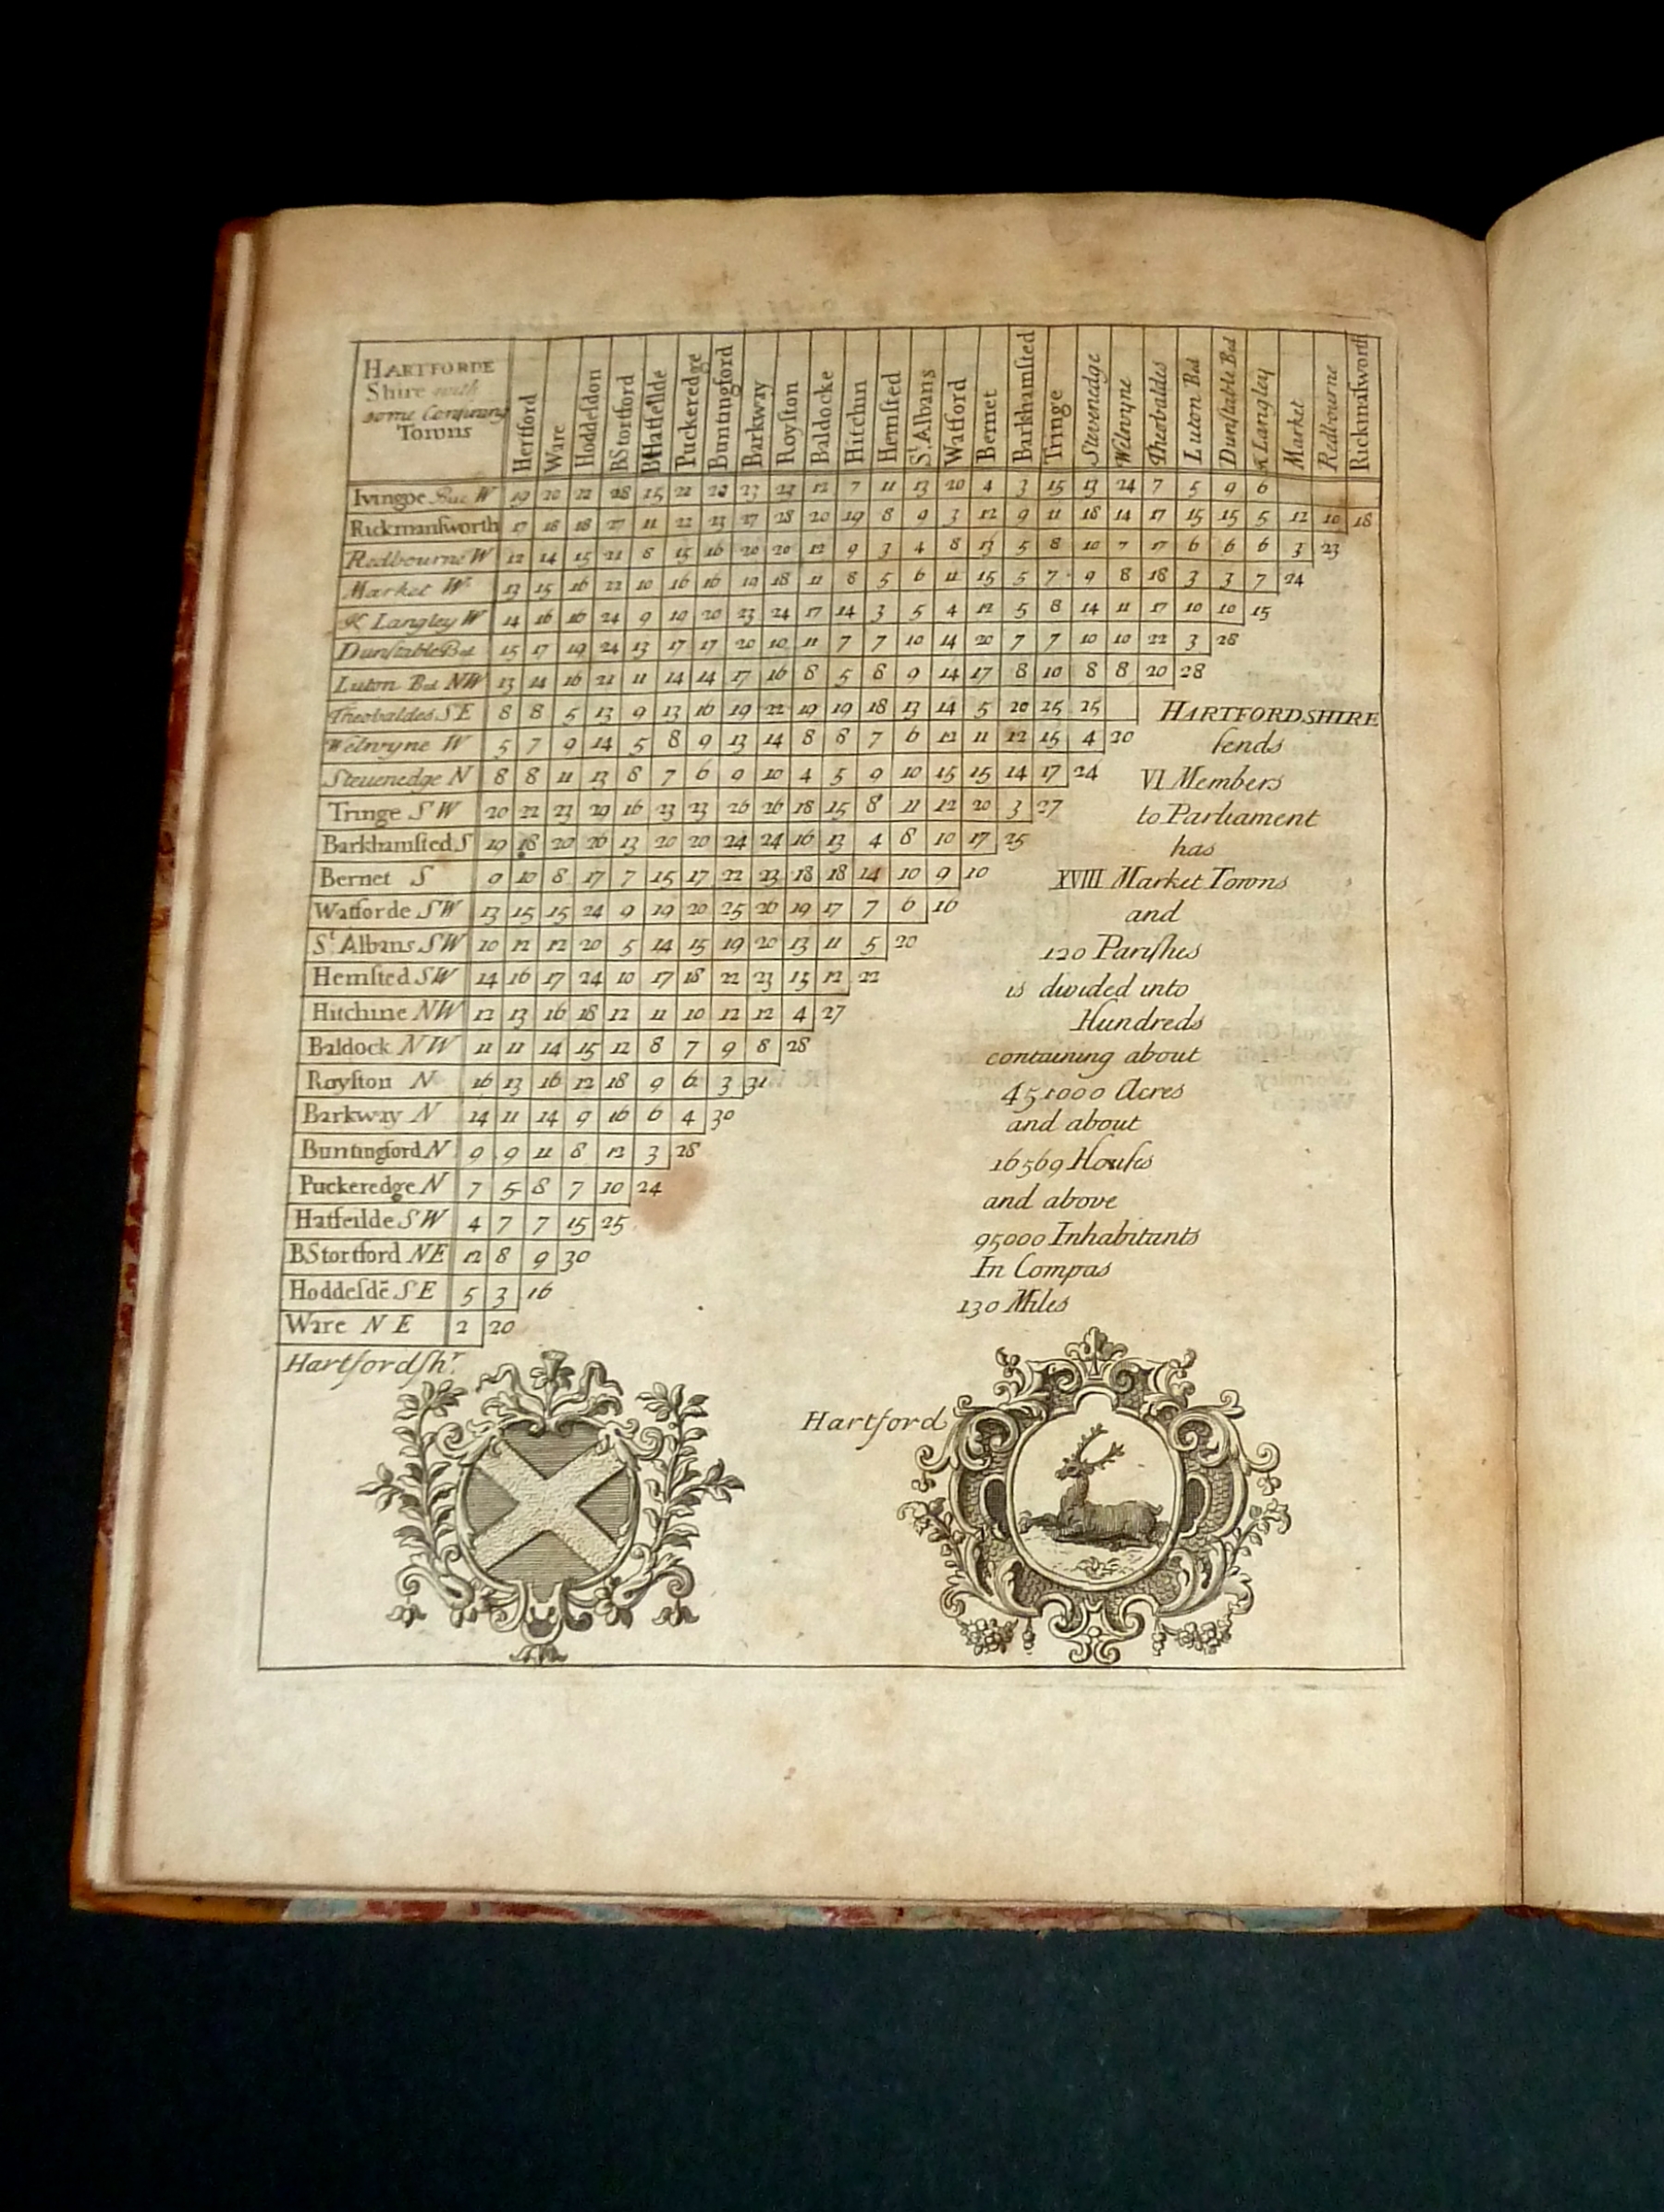 HARTFORDE
Shire with
some Confining
Towns
Hertford Ware Hoddeſdon BStortford Hatfeilde Puckeredge Buntingford Barkway Royſton Baldocke Hitchin Hemſted St. Albans Watford Bernet Barkhamſted Tringe Stevenedge Welwyne Theobaldes Luton Bed Dunſtable Bed K Langley Market Redbourne Rickmanſworth
Ivingoe Buc W 19 20 22 28 15 22 22 23 23 12 7 11 13 20 4 3 15 13 24 7 5 9 6
Rickmanſworth 17 18 18 27 11 22 23 27 28 20 19 8 9 3 12 9 11 18 14 17 15 15 5 12 10 18
Redbourne W 12 14 15 21 8 15 16 20 20 12 9 3 4 8 13 5 8 10 7 17 6 6 6 3 23
Market W 13 15 16 22 10 16 16 19 18 11 8 5 6 11 15 5 7 9 8 18 3 3 7 24
K Langley W 14 16 16 24 9 19 20 23 24 17 14 3 5 4 12 5 8 14 11 17 10 10 15
Dunſtable Bed 15 17 19 24 13 17 17 20 19 11 7 7 10 14 20 7 7 10 10 22 3 28
Luton Bed NW 13 14 16 21 11 14 14 17 16 8 5 8 9 14 17 8 10 8 8 20 28
Theobaldes SE 8 8 5 13 9 13 16 19 22 19 19 18 13 14 5 20 25 25
Welwyne W 5 7 9 14 5 8 9 13 14 8 8 7 6 12 11 12 15 4 20
Steuenedge N 8 8 11 13 8 7 6 9 10 4 5 9 10 15 15 14 17 24
Tringe SW 20 22 23 29 16 23 23 26 26 18 15 8 11 12 20 3 27
Barkhamſted S 19 18 20 26 13 20 20 24 24 16 13 4 8 10 17 25
Bernet S 9 10 8 17 7 15 17 22 23 18 18 14 10 9 10
Watforde SW 13 15 15 24 9 19 20 25 26 19 17 7 6 16
St. Albans SW 10 12 12 20 5 14 15 19 20 13 11 5 20
Hemſted SW 14 16 17 24 10 17 18 22 23 15 12 22
Hitchine NW 12 13 16 18 12 11 10 12 12 4 27
Baldock NW 11 11 14 15 12 8 7 9 8 28
Royſton N 16 13 16 12 18 9 6 3 31
Barkway N 14 11 14 9 16 6 4 30
Buntingford N 9 9 11 8 12 3 28
Puckeredge N 7 5 8 7 10 24
Hatfeilde SW 4 7 7 15 25
BStortford NE 12 8 9 30
Hoddeſdē SE 5 3 16
Ware NE 2 20
HARTFORDSHIRE
ſends
VI Members
to Parliament
has
XVIII Market Towns
and
120 Pariſhes
is divided into
Hundreds
containing about
451000 Acres
and about
16569 Houſes
and above
95000 Inhabitants
In Compas
130 Miles
Hartfordſhr.
Hartford